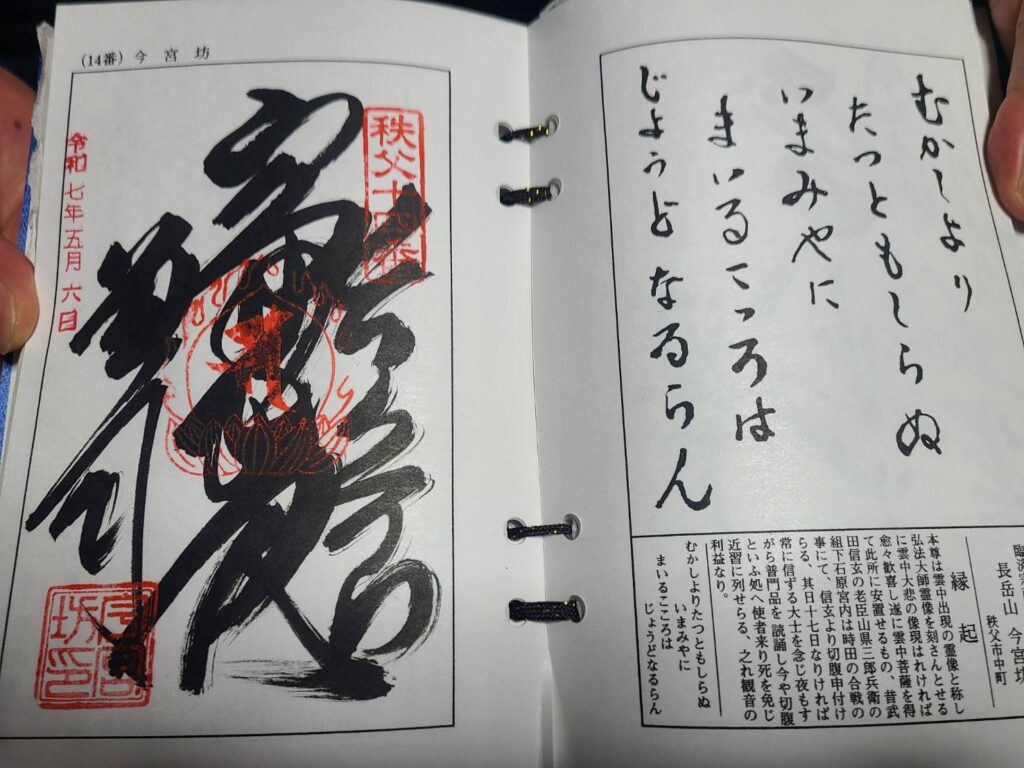 (14番) 今宮坊
秩父十四番
令和七年五月六日
むかしより
たつともしらぬ
いまみやに
まいるこころは
じょうどなるらん
長岳山 今宮坊
秩父市中町
縁起
本尊は雲中出現の霊像と称し
弘法大師霊像を刻さんとせる
に雲中大悲の像現はれければ
愈々歓喜し遂に雲中菩薩を得
て此所に安置せるもの、昔武
田信玄の老臣山県三郎兵衛の
組下石原宮内は時田の合戦の
事にて、信玄より切腹申付け
らる、其日十七日なりければ
常に信ずる大士を念じ夜もす
がら普門品を読誦し今や切腹
といふ処へ使者来り死を免じ
近習に列せらる、之れ観音の
利益なり。
むかしよりたつともしらぬ
いまみやに
まいるこころは
じょうどなるらん